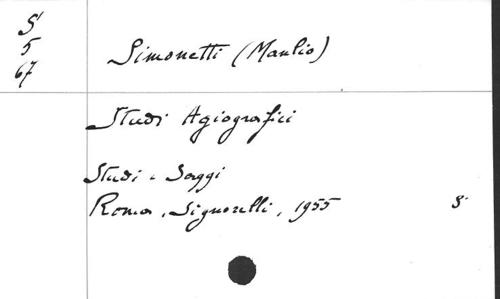 S
5
67
Simonetti (Manlio)
Studi Agiografici
Studi e Saggi
Roma, Signorelli, 1955 8°